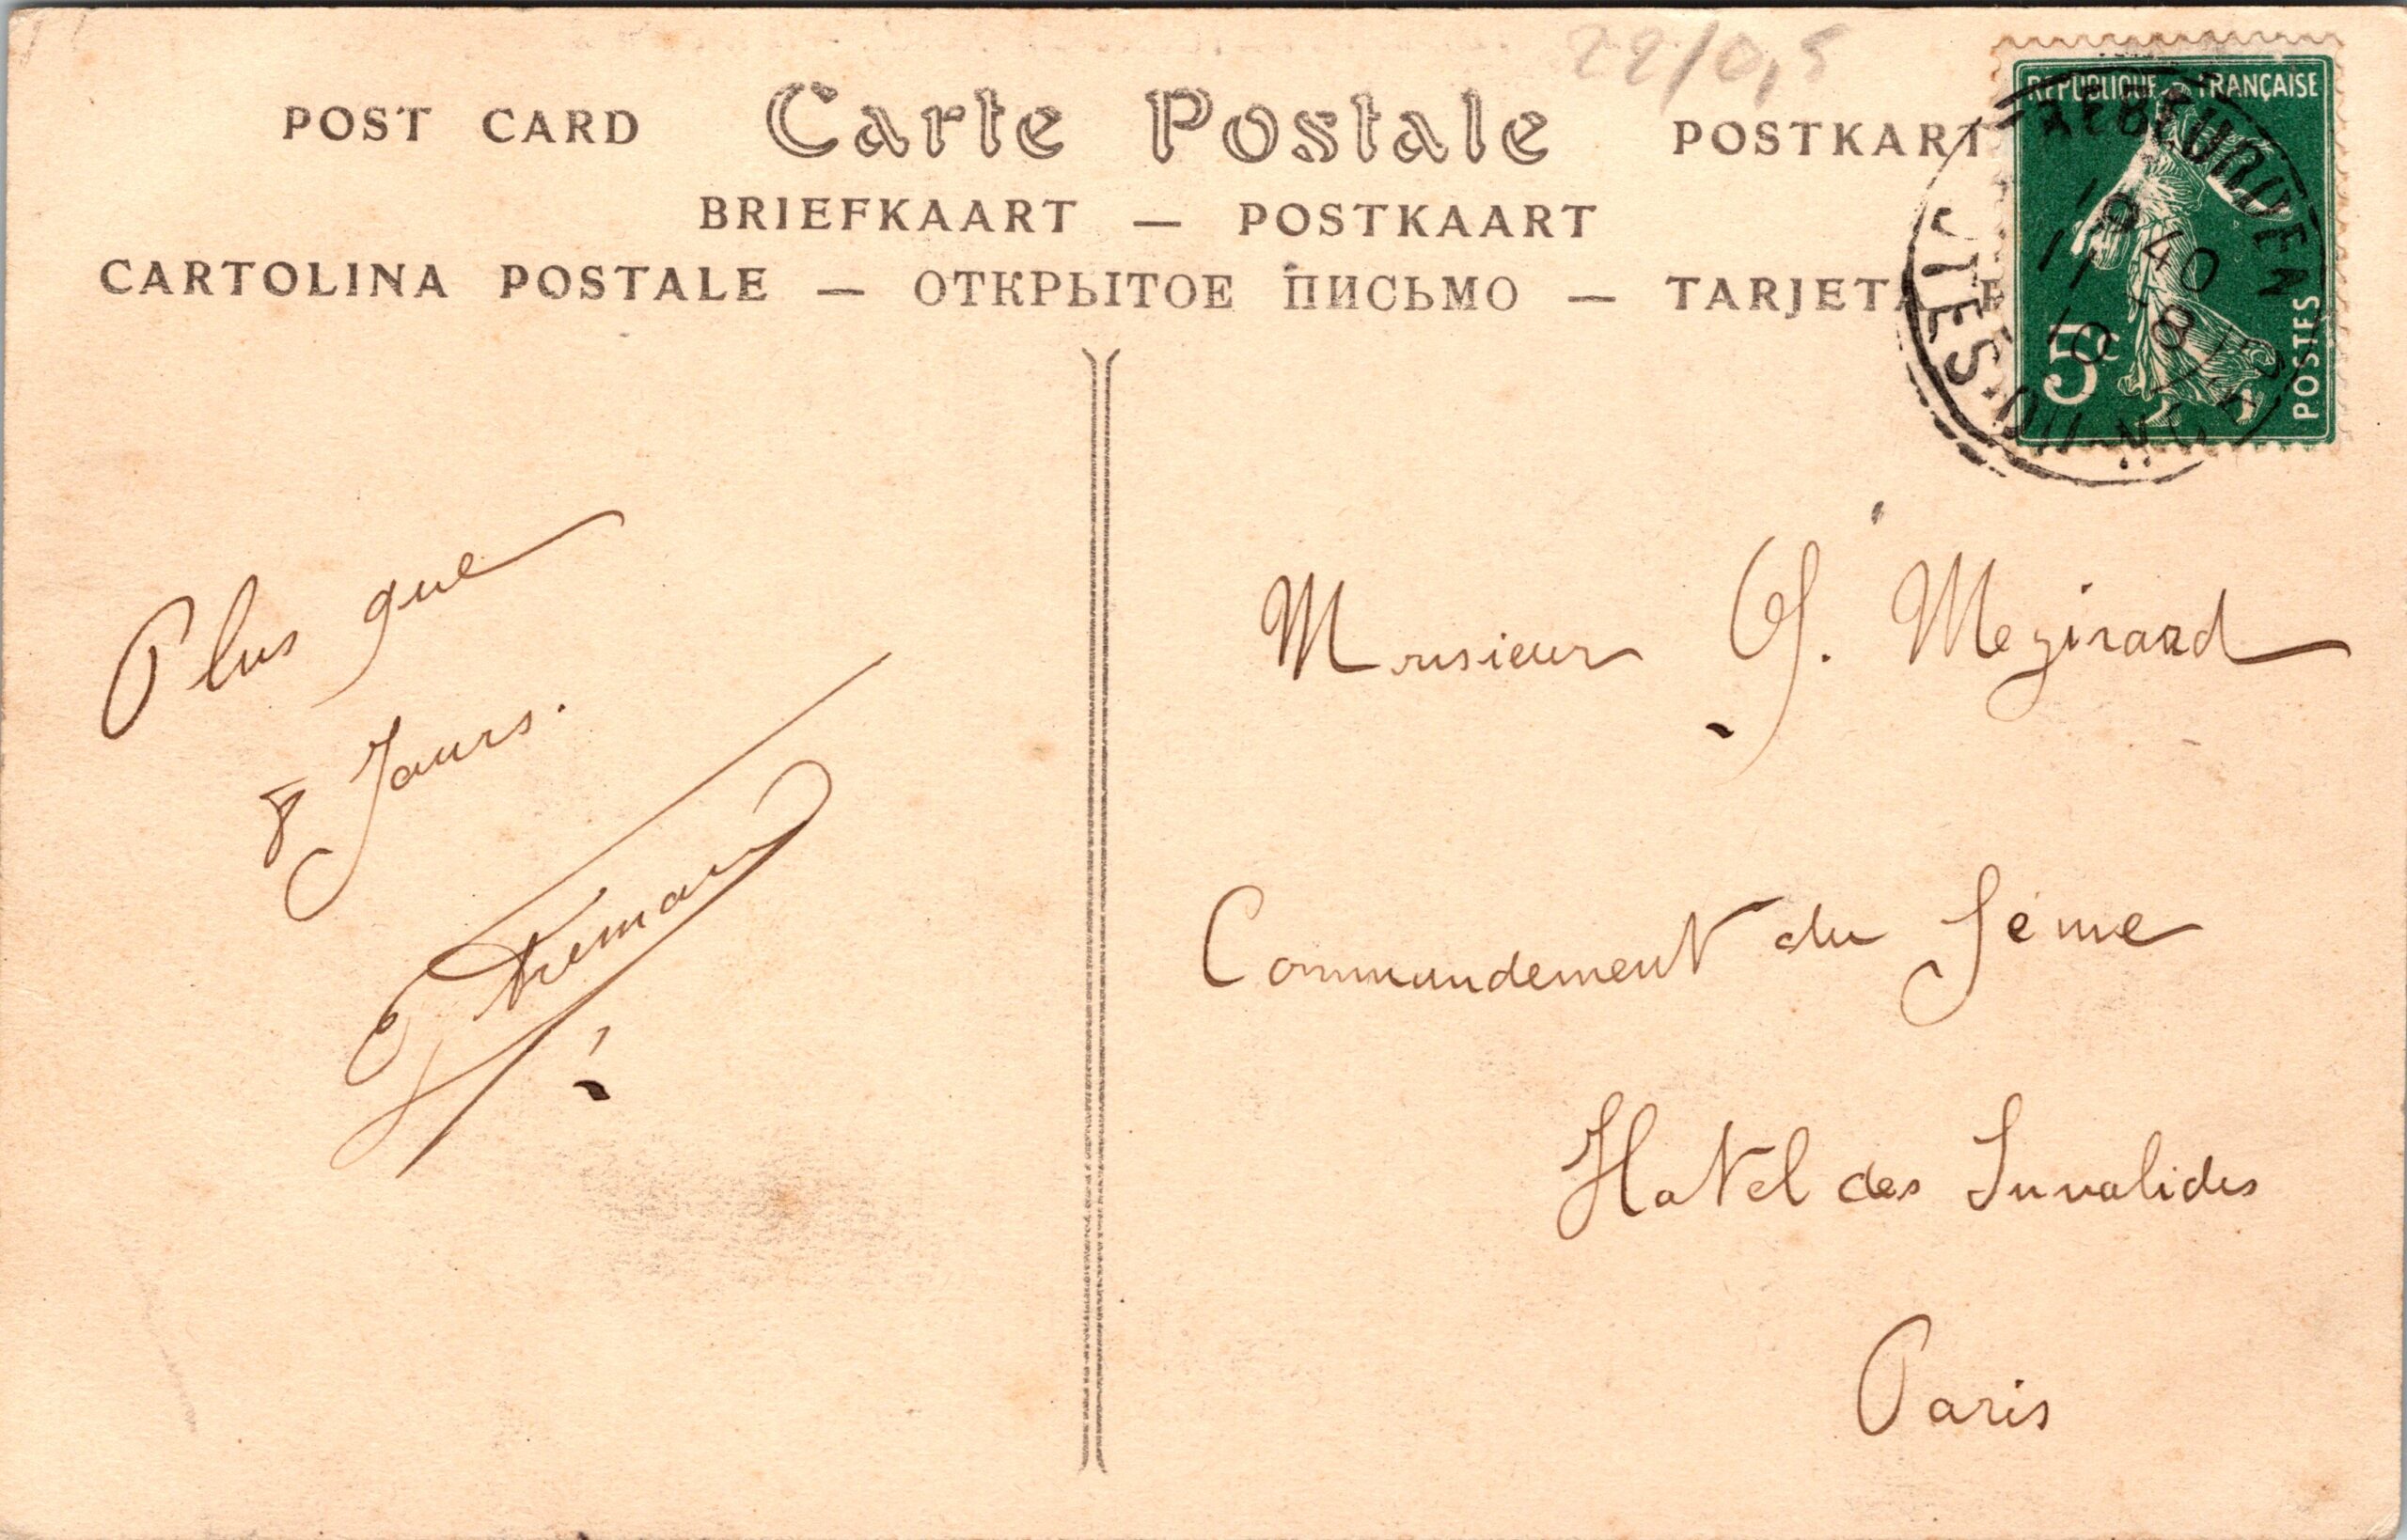 22/0,5
POST CARD Carte Postale POSTKART
BRIEFKAART — POSTKAART
CARTOLINA POSTALE — ОТКРЫТОЕ ПИСЬМО — TARJETA P
REPUBLIQUE FRANÇAISE
5c
POSTES
19 40
11 - 8
10
Plus que
8 Jours.
Monsieur G. Mezirard
Commandement du Génie
Hotel des Invalides
Paris